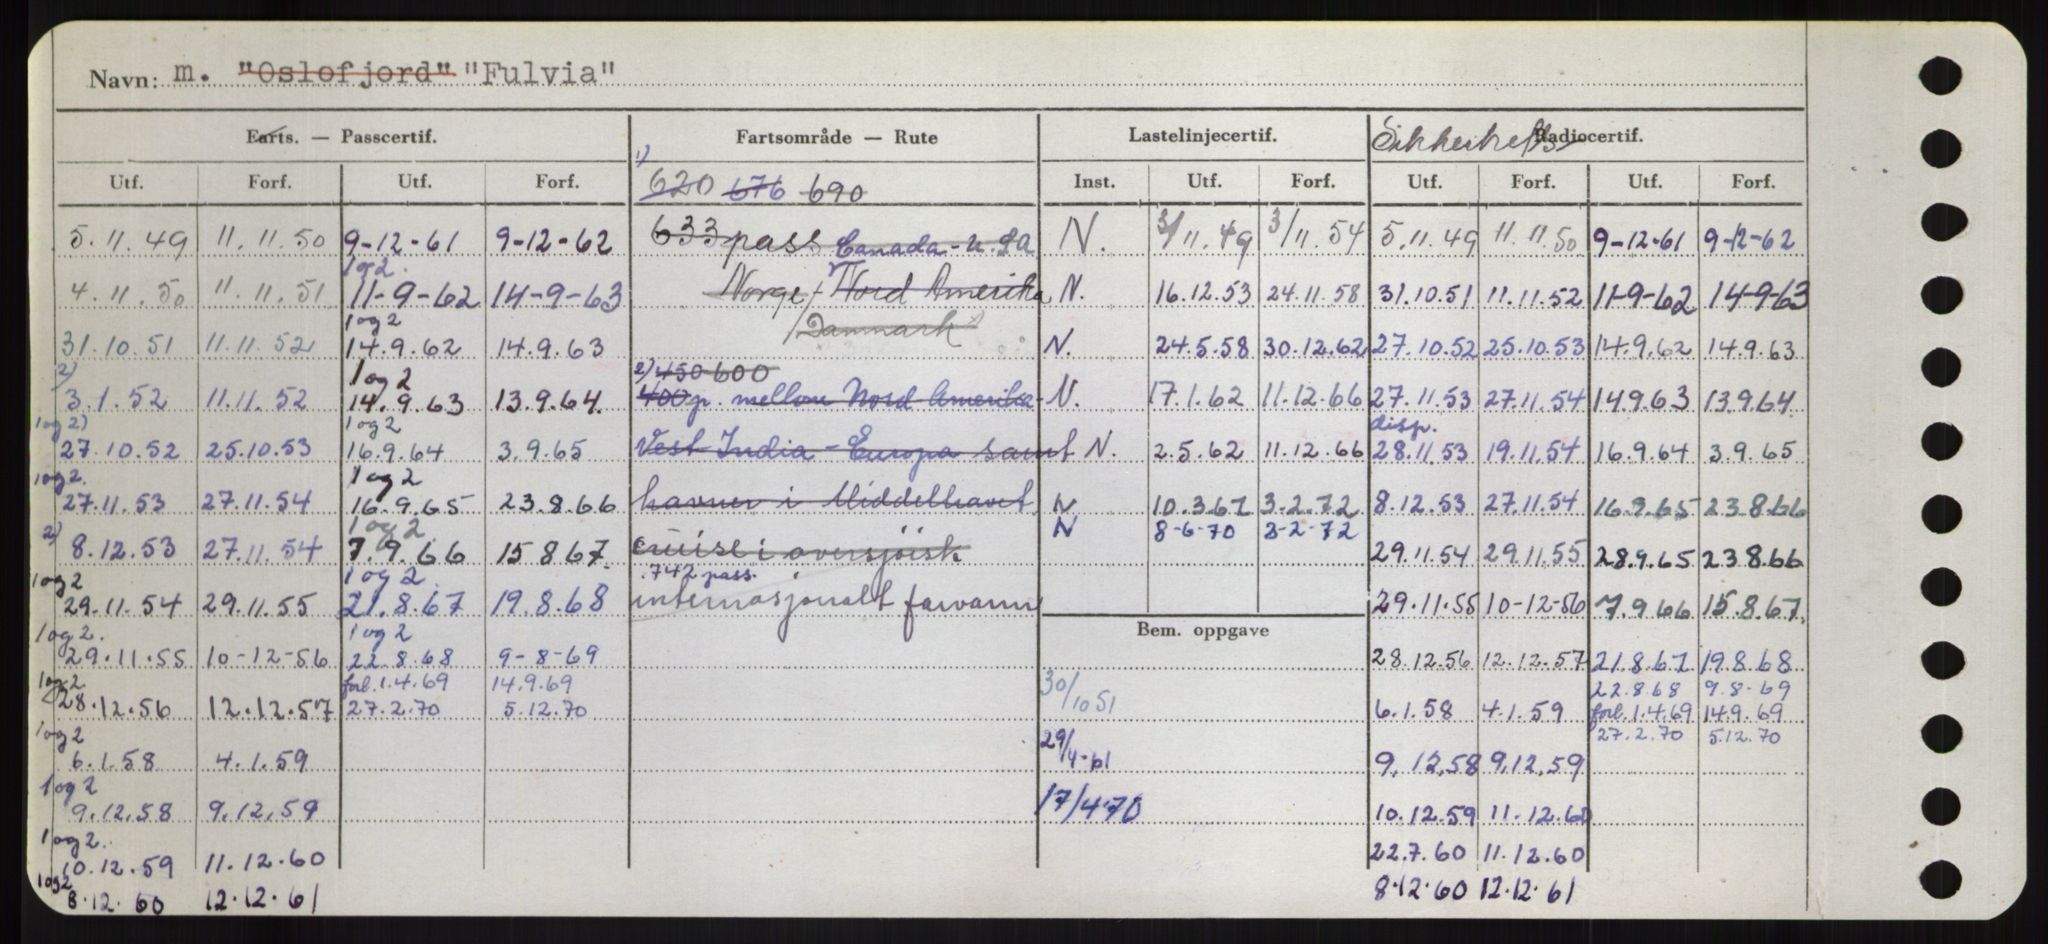 Navn: m. "Oslofjord" "Fulvia"
Farts. — Passcertif. Fartsområde — Rute Lastelinjecertif. Sikkerhets Radiocertif.
Utf. Forf. Utf. Forf. 1) 620 676 690 Inst. Utf. Forf. Utf. Forf. Utf. Forf.
5.11.49 11.11.50 9-12-61 9-12-62 633 pass Canada - U.SA N. 3/11.49 3/11.54 5.11.49 11.11.50 9-12-61 9-12-62
1og2.
4.11.50 11.11.51 11-9-62 14-9-63 Norge / Nord Amerika N. 16.12.53 24.11.58 31.10.51 11.11.52 11-9-62 14-9-63
1og2 Danmark
31.10.51 11.11.52 14.9.62 14.9.63 N. 24.5.58 30.12.62 27.10.52 25.10.53 14.9.62 14.9.63
2) 1og2 2) 450 600
3.1.52 11.11.52 14.9.63 13.9.64. 400 p. mellom Nord Amerika - N. 17.1.62 11.12.66 27.11.53 27.11.54 14.9.63 13.9.64
1og2) 1og2 disp.
27.10.52 25.10.53 16.9.64 3.9.65 Vest India - Europa samt N. 2.5.62 11.12.66 28.11.53 19.11.54 16.9.64 3.9.65
1og2. 1og2
27.11.53 27.11.54 16.9.65 23.8.66 havner i Middelhavet N 10.3.67 3.2.72 8.12.53 27.11.54 16.9.65 23.8.66
2) 1og2 N 8-6-70 3-2-72
8.12.53 27.11.54 7.9.66 15.8.67. cruise i oversjøisk 29.11.54 29.11.55 28.9.65 23.8.66
1og2 1og2. 742 pass.
29.11.54 29.11.55 21.8.67 19.8.68 internasjonalt farvann 29.11.55 10-12-56 7.9.66 15.8.67.
1og2. 1og2 Bem. oppgave
29.11.55 10-12-56 22.8.68 9-8-69 28.12.56 12.12.57 21.8.67 19.8.68
1og2 forl.1.4.69 14.9.69 30/10 51 22.8.68 9.8-69
28.12.56 12.12.57 27.2.70 5.12.70 6.1.58 4.1.59 forl.1.4.69 14.9.69
1og2 29/4-61 27.2.70 5.12.70
6.1.58 4.1.59 9.12.58 9.12.59
1og2
9.12.58 9.12.59 17/4.70 10.12.59 11.12.60
1og2.
10.12.59 11.12.60 22.7.60 11.12.60
1og2
8.12.60 12.12.61 8.12.60 12.12.61